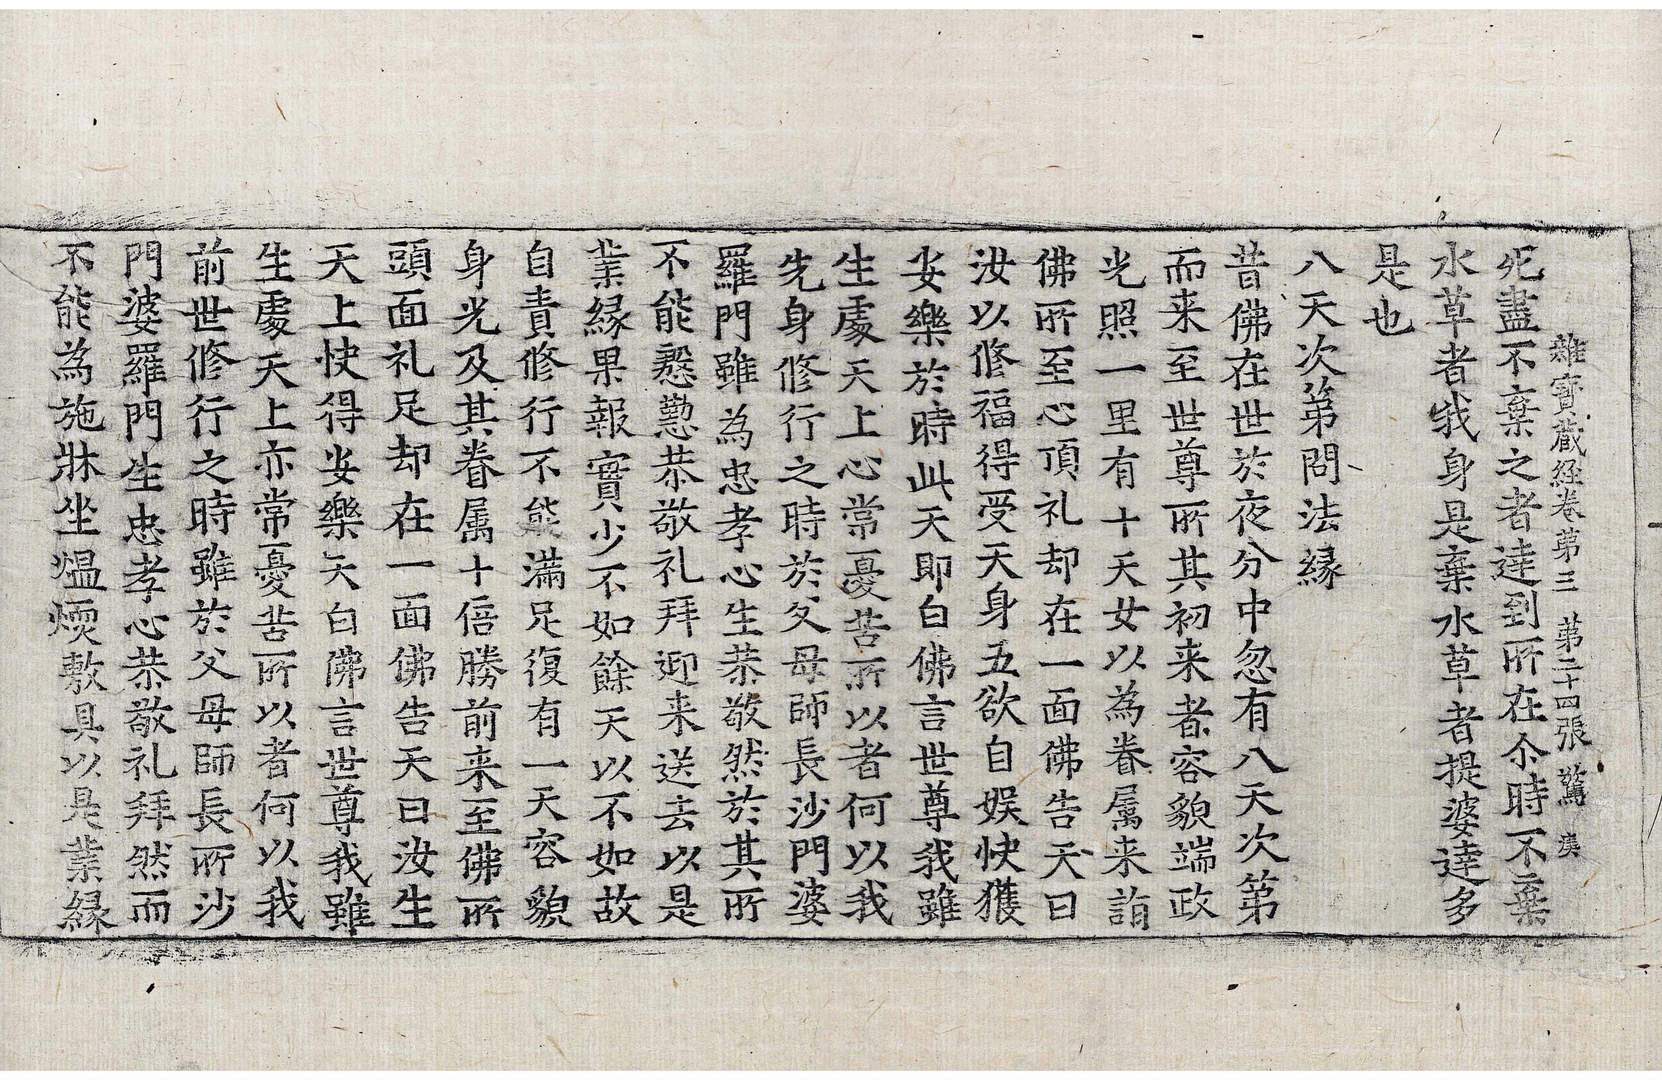 雜寶藏經卷第三 第二十四張 驚
死盡不棄之者達到所在尒時不棄
水草者我身是棄水草者提婆達多
是也
八天次第問法緣
昔佛在世於夜分中忽有八天次第
而来至世尊所其初来者容貌端政
光照一里有十天女以為眷属来詣
佛所至心頂礼却在一面佛告天曰
汝以修福得受天身五欲自娱快獲
安樂於時此天即白佛言世尊我雖
生處天上心常憂苦所以者何以我
先身修行之時於父母師長沙門婆
羅門雖為忠孝心生恭敬然於其所
不能慇懃恭敬礼拜迎来送去以是
業緣果報實少不如餘天以不如故
自責修行不能滿足復有一天容貌
身光及其眷属十倍勝前来至佛所
頭面礼足却在一面佛告天曰汝生
天上快得安樂天白佛言世尊我雖
生處天上亦常憂苦所以者何以我
前世修行之時雖於父母師長所沙
門婆羅門生忠孝心恭敬礼拜然而
不能為施牀坐煴煗敷具以是業緣